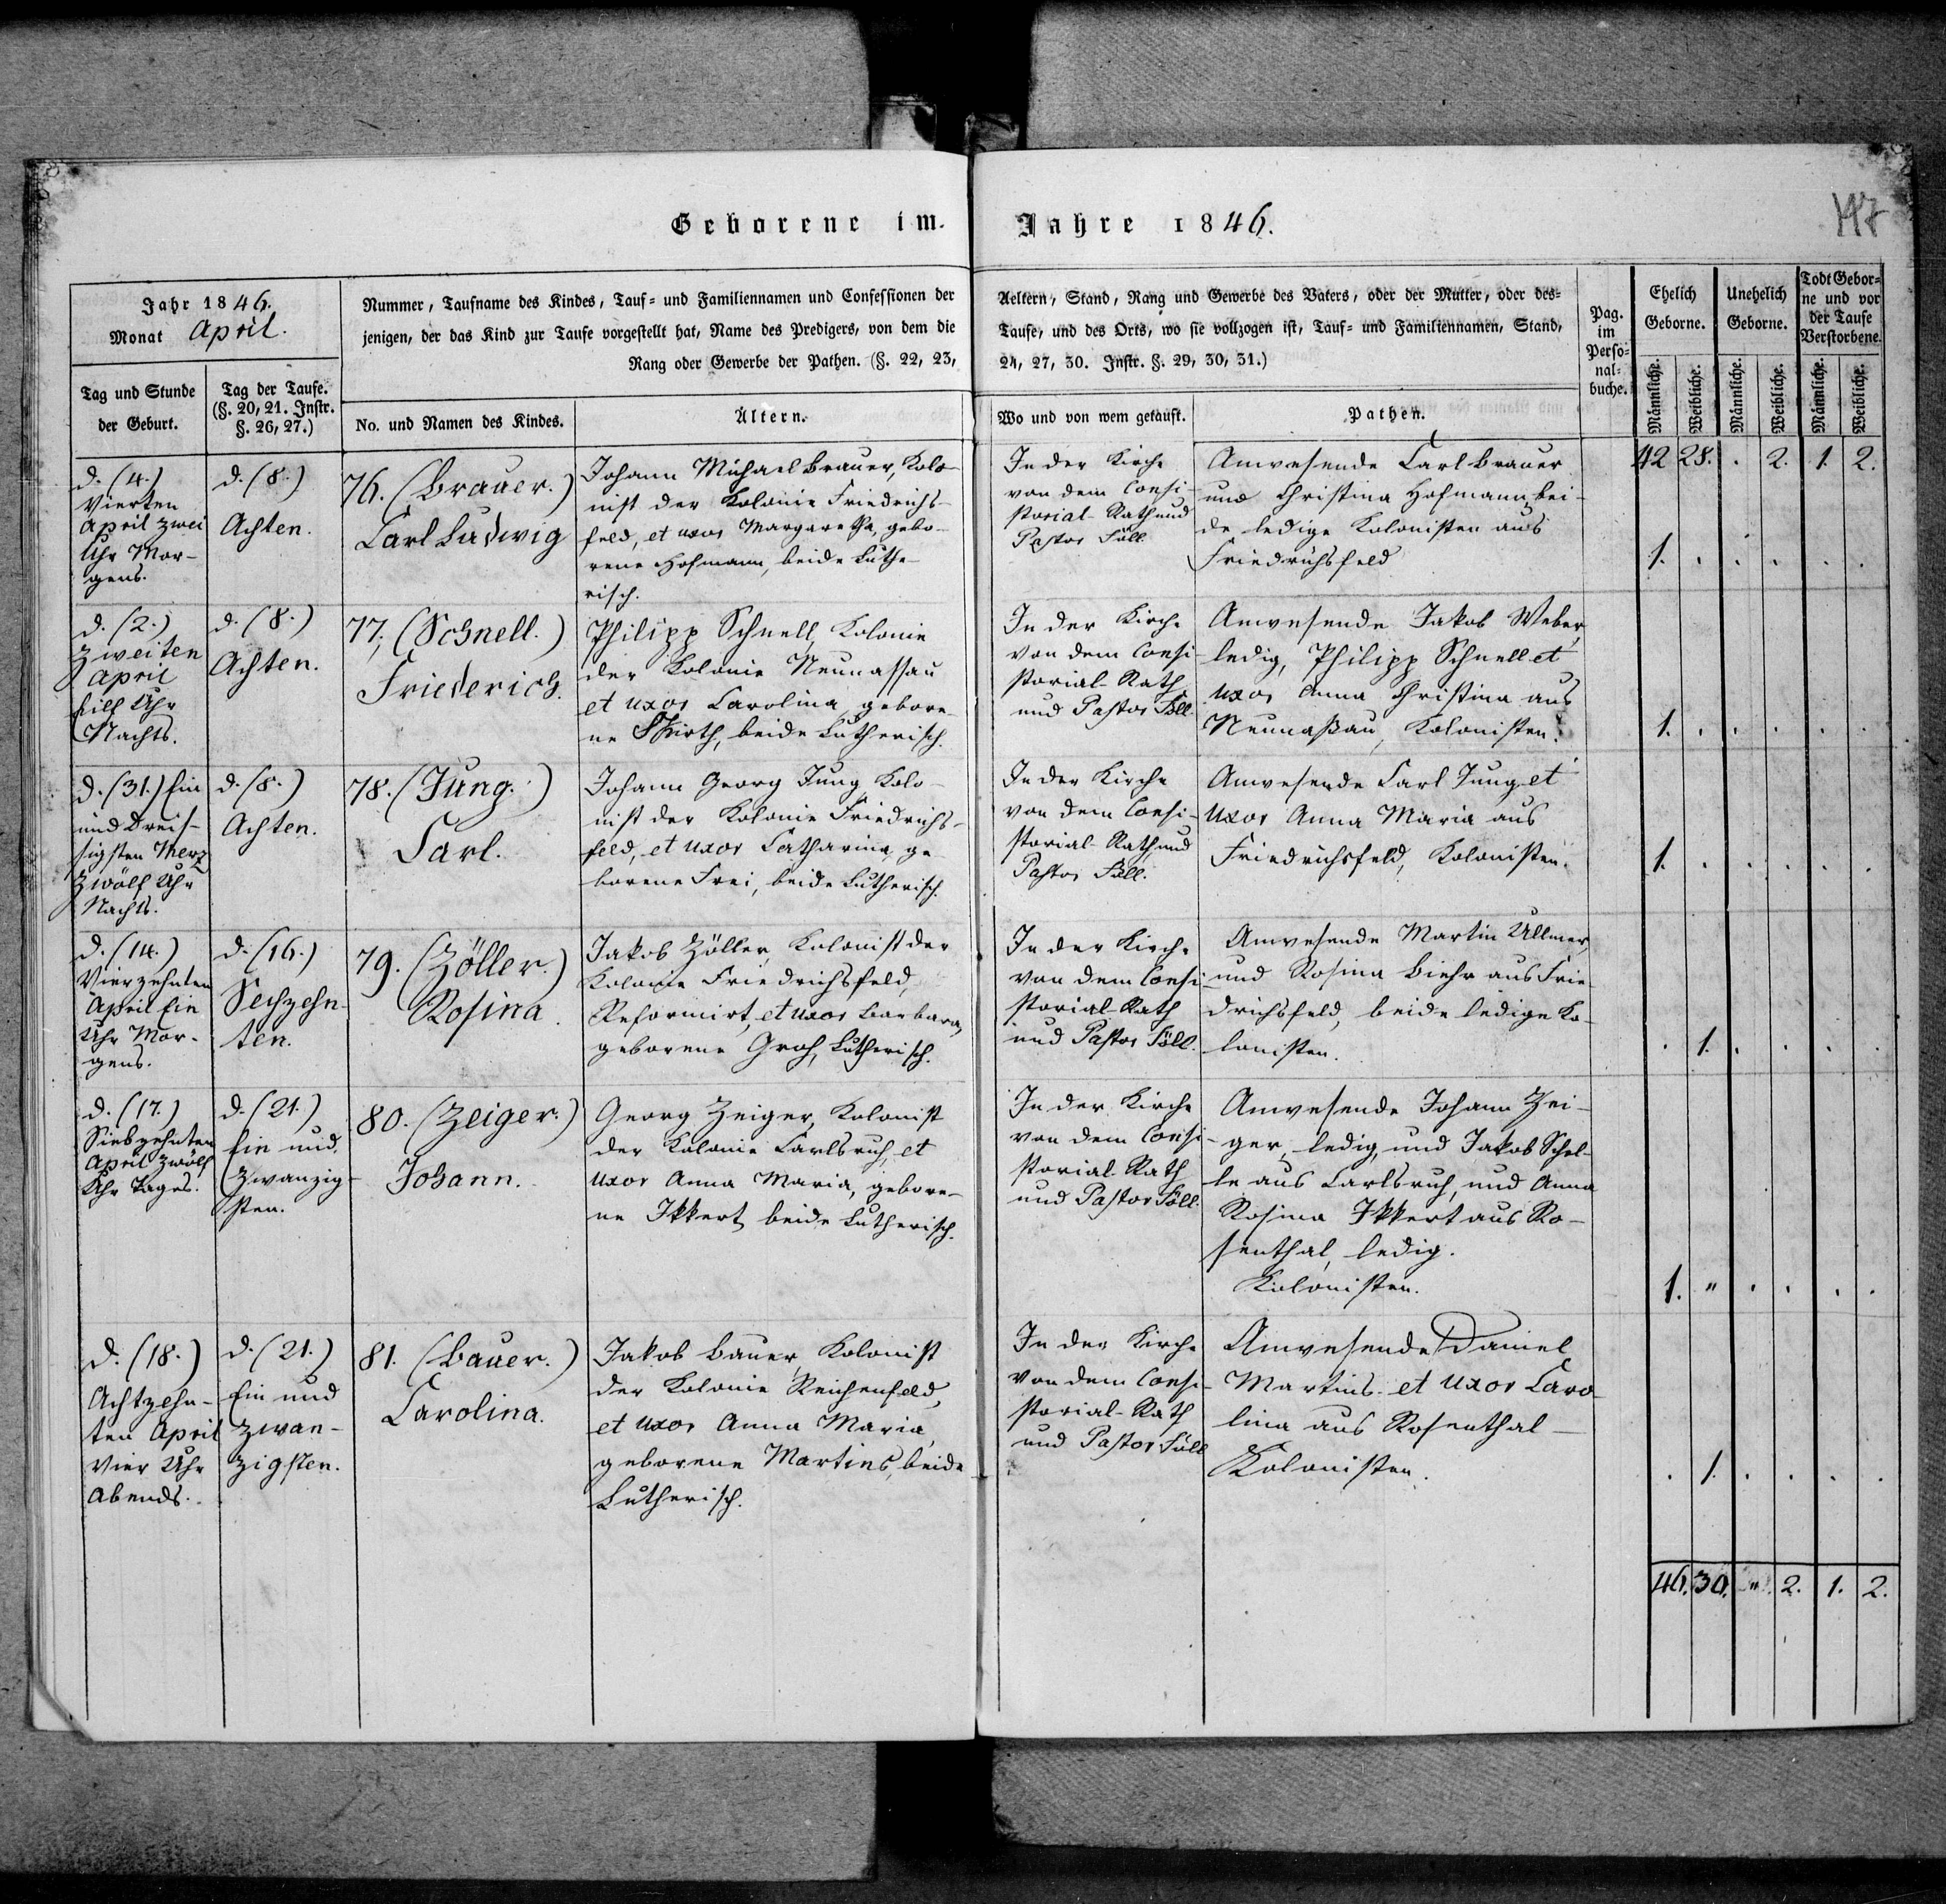 Geborene im Jahre 1846.
147
Jahr 1846.
Monat April.
Nummer, Taufname des Kindes, Tauf- und Familiennamen und Confessionen der
jenigen, der das Kind zur Taufe vorgestellt hat, Name des Predigers, von dem die
Rang oder Gewerbe der Pathen. (§. 22, 23,
Aeltern, Stand, Rang und Gewerbe des Vaters, oder der Mutter, oder des-
Taufe, und des Orts, wo sie vollzogen ist, Tauf- und Familiennamen, Stand,
24, 27, 30. Instr. §. 29, 30, 31.)
Pag.
im
Perso-
nal-
buche.
Ehelich
Geborne.
Unehelich
Geborne.
Todt Gebor-
ne und vor
der Taufe
Verstorbene.
Tag und Stunde
der Geburt.
Tag der Taufe.
(§. 20, 21. Instr.
§. 26, 27.)
No. und Namen des Kindes.
Ältern.
Wo und von wem getauft.
Pathen.
Männliche.
Weibliche.
Männliche.
Weibliche.
Männliche.
Weibliche.
42 28. . 2. 1. 2.
d. (4.)
Vierten
April zwei
Uhr Mor-
gens.
d. (8.)
Achten.
76. (Brauer.)
Carl Ludwig
Johann Michael Brauer, Kolo-
nist der Kolonie Friedrichs-
feld, et uxor Margaretha, gebo-
rene Hofmann, beide Luthe-
risch.
In der Kirche
von dem Consi-
storial-Rath und
Pastor Föll.
Anwesende Carl Brauer
und Christina Hofmann, bei-
de ledige Kolonisten aus
Friedrichsfeld
1. . . . . .
d. (2.)
Zweiten
April
Eilf Uhr
Nachts.
d. (8.)
Achten.
77. (Schnell.)
Friederich.
Philipp Schnell, Kolonie
der Kolonie Neunassau
et uxor Carolina, gebore-
ne Wirth, beide Lutherisch.
In der Kirche
von dem Consi-
storial-Rath
und Pastor Föll.
Anwesende Jakob Weber,
ledig, Philipp Schnell et
uxor Anna Christina aus
Neunaßau, Kolonisten.
1. . . . . .
d. (31.) Ein
und Dreis-
sigsten Merz
Zwölf Uhr
Nachts.
d. (8.)
Achten.
78. (Jung.)
Carl.
Johann Georg Jung, Kolo-
nist der Kolonie Friedrichs-
feld, et uxor Catharina, ge-
borene Frei, beide Lutherisch.
In der Kirche
von dem Consi-
storial-Rath und
Pastor Föll.
Anwesende Carl Jung et
uxor Anna Maria aus
Friedrichsfeld, Kolonisten.
1. . . . . .
d. (14.)
Vierzehnten
April Ein
Uhr Mor-
gens.
d. (16.)
Sechzehn-
ten.
79. (Zöller.)
Rosina.
Jakob Zöller, Kolonist der
Kolonie Friedrichsfeld,
Reformirt, et uxor Barbara,
geborene Groh, Lutherisch.
In der Kirche
von dem Consi-
storial-Rath
und Pastor Föll.
Anwesende Martin Ullmer,
und Rosina Biehr aus Frie-
drichsfeld, beide ledige Ko-
lonisten.
. 1. . . . .
d. (17.)
Siebzehnten
April Zwölf
Uhr Tages.
d. (21.)
Ein und
Zwanzig-
sten.
80. (Zeiger.)
Johann.
Georg Zeiger, Kolonist
der Kolonie Carlsruh, et
uxor Anna Maria, gebore-
ne Ikkert, beide Lutherisch.
In der Kirche
von dem Consi-
storial-Rath
und Pastor Föll.
Anwesende Johann Zei-
ger, ledig, und Jakob Schel-
le aus Carlsruh, und Anna
Rosina Ikkert aus Ro-
senthal, ledig.
Kolonisten.
1. " . . . .
d. (18.)
Achtzehn-
ten April
Vier Uhr
Abends.
d. (21.)
Ein und
Zwan-
zigsten.
81. (Bauer.)
Carolina.
Jakob Bauer, Kolonist
der Kolonie Reichenfeld,
et uxor Anna Maria,
geborene Martins, beide
Lutherisch.
In der Kirche
von dem Consi-
storial-Rath
und Pastor Föll
Anwesende Daniel
Martins et uxor Caro-
lina aus Rosenthal-
Kolonisten.
. 1. . . . .
46. 30. " 2. 1. 2.